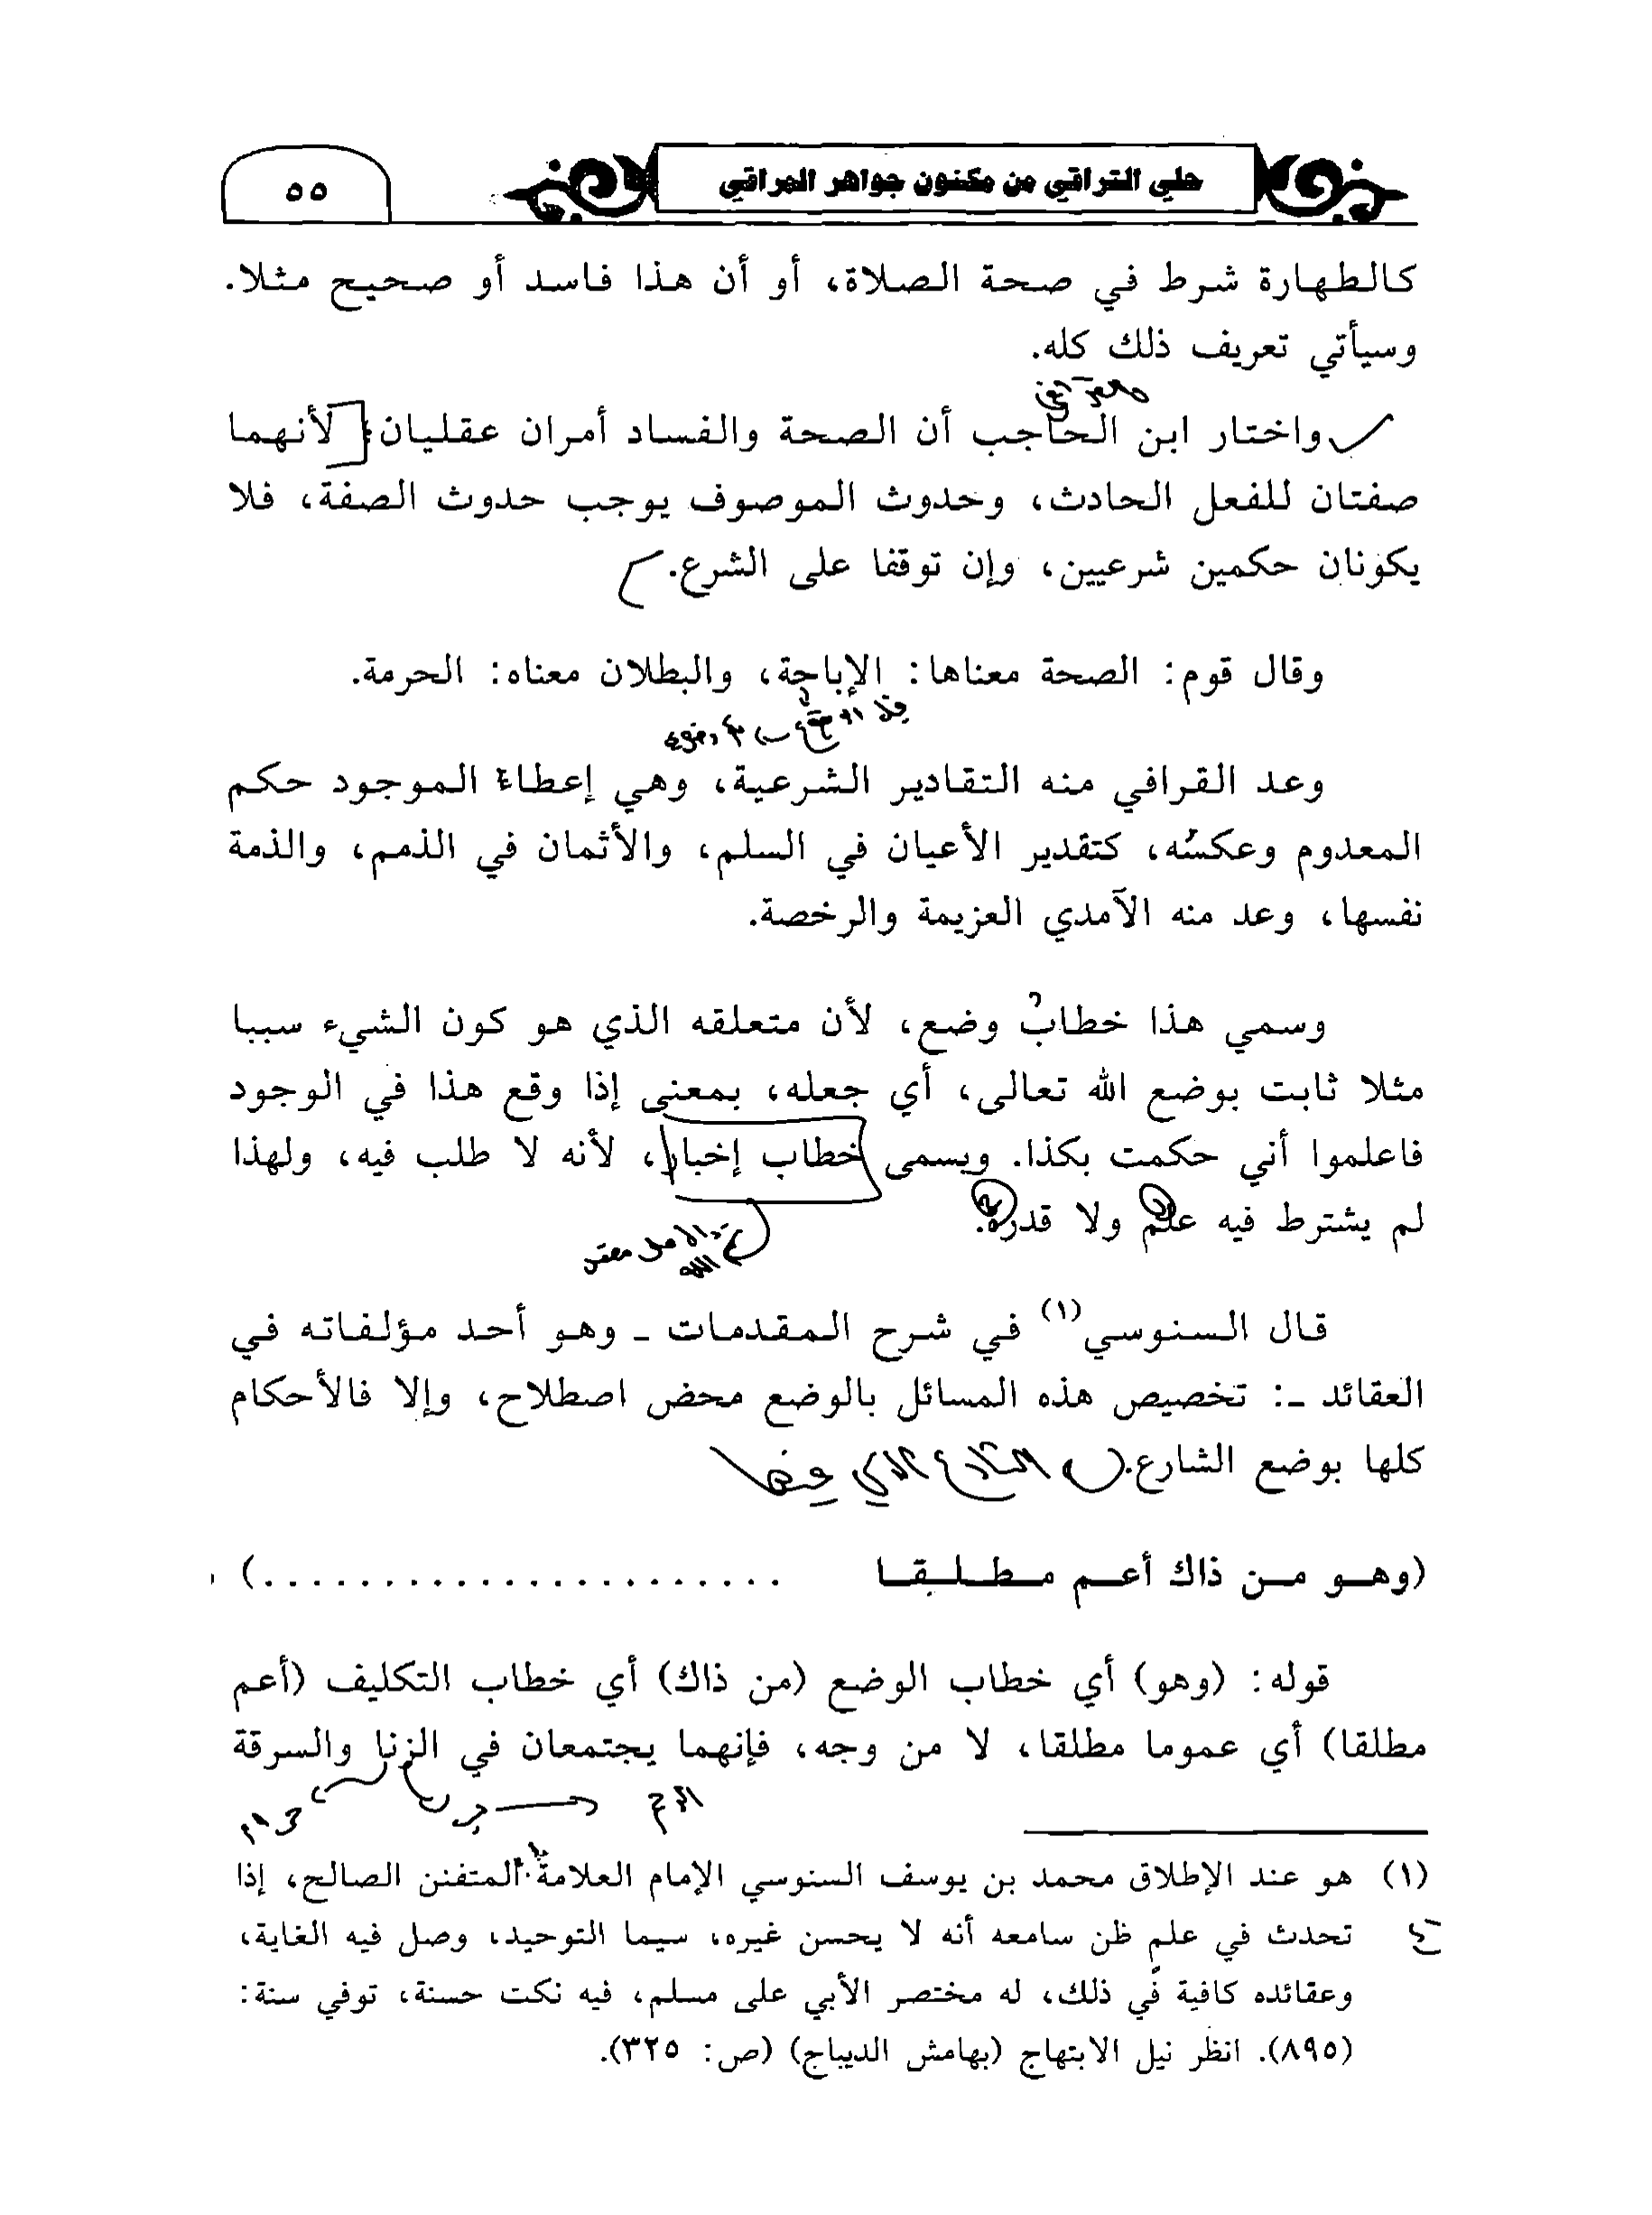 حلي التراقي من مكنون جواهر المراقي
٥٥
كالطهارة شرط في صحة الصلاة، أو أن هذا فاسد أو صحيح مثلا.
وسيأتي تعريف ذلك كله.
واختار ابن الحاجب أن الصحة والفساد أمران عقليان؛ لأنهما
صفتان للفعل الحادث، وحدوث الموصوف يوجب حدوث الصفة، فلا
يكونان حكمين شرعيين، وإن توقفا على الشرع.
وقال قوم: الصحة معناها: الإباحة، والبطلان معناه: الحرمة.
وعد القرافي منه التقادير الشرعية، وهي إعطاء الموجود حكم
المعدوم وعكسُه، كتقدير الأعيان في السلم، والأثمان في الذمم، والذمة
نفسها، وعد منه الآمدي العزيمة والرخصة.
وسمي هذا خطابَ وضع، لأن متعلقه الذي هو كون الشيء سببا
مثلا ثابت بوضع الله تعالى، أي جعله، بمعنى إذا وقع هذا في الوجود
فاعلموا أني حكمت بكذا. ويسمى خطاب إخبار، لأنه لا طلب فيه، ولهذا
لم يشترط فيه علم ولا قدرة.
قال السنوسي(١) في شرح المقدمات ـ وهو أحد مؤلفاته في
العقائد ـ: تخصيص هذه المسائل بالوضع محض اصطلاح، وإلا فالأحكام
كلها بوضع الشارع.
(وهـو مـن ذاك أعـم مـطـلـقـا ......................)
قوله: (وهو) أي خطاب الوضع (من ذاك) أي خطاب التكليف (أعم
مطلقا) أي عموما مطلقا، لا من وجه، فإنهما يجتمعان في الزنا والسرقة
(١) هو عند الإطلاق محمد بن يوسف السنوسي الإمام العلامة المتفنن الصالح، إذا
تحدث في علم ظن سامعه أنه لا يحسن غيره، سيما التوحيد، وصل فيه الغاية،
وعقائده كافية في ذلك، له مختصر الأبي على مسلم، فيه نكت حسنة، توفي سنة:
(٨٩٥). انظر نيل الابتهاج (بهامش الديباج) (ص: ٣٢٥).